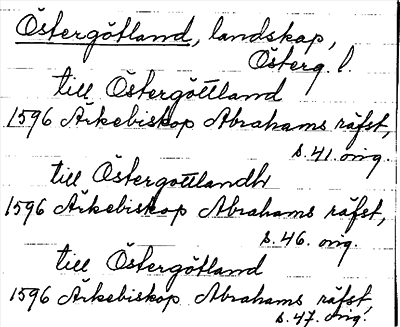 Östergötland, landskap,
Österg. l.
till Östergöttland
1596 Ärkebiskop Abrahams räfst,
s. 41. orig.
till Östergöttlandh
1596 Ärkebiskop Abrahams räfst,
s. 46. orig.
till Östergötland
1596 Ärkebiskop Abrahams räfst,
s. 47. orig.